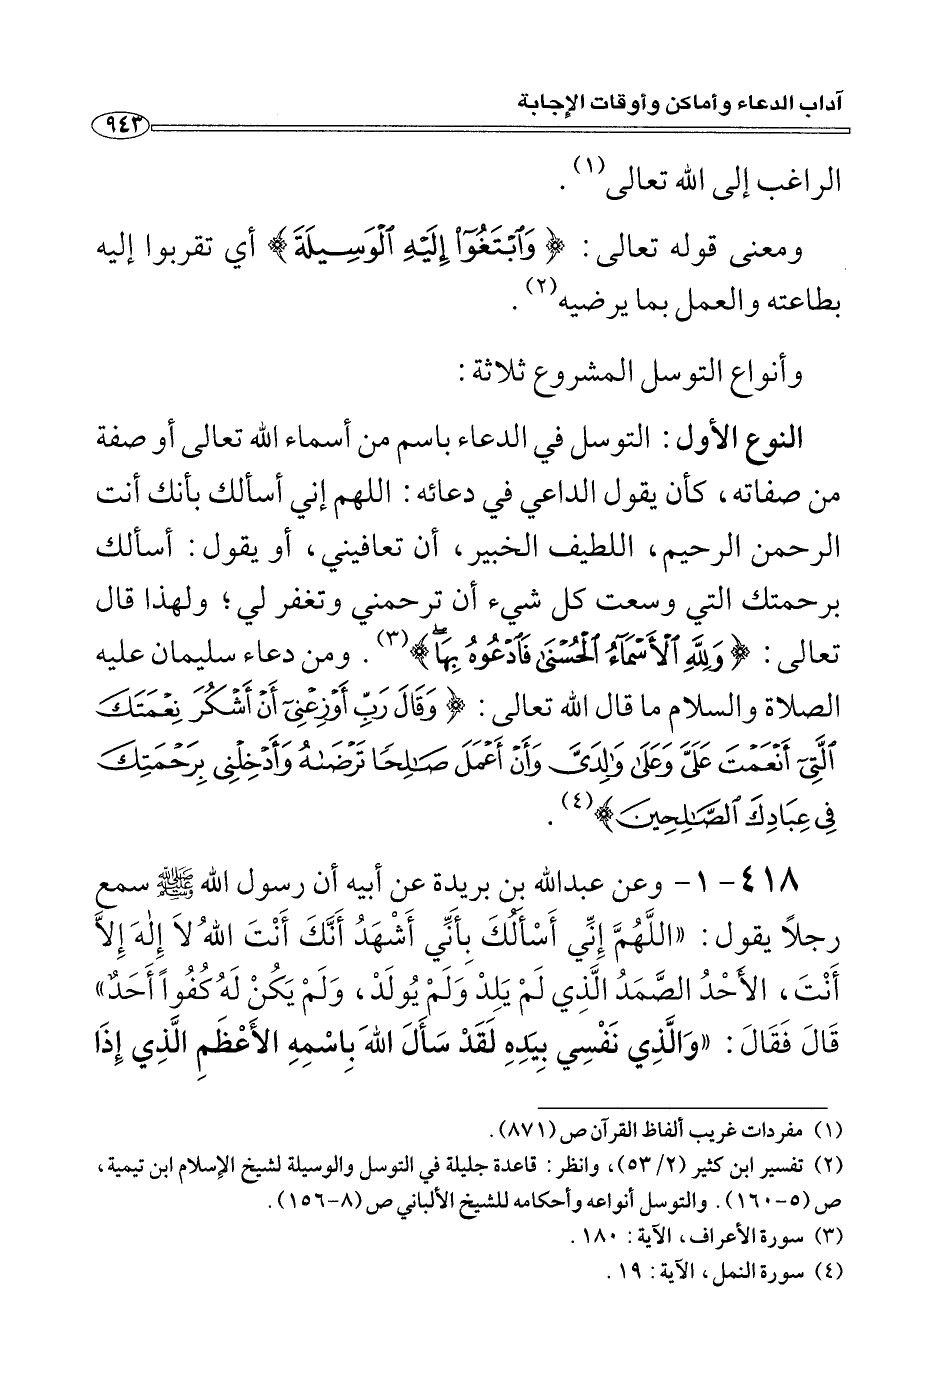 آداب الدعاء وأماكن وأوقات الإجابة
٩٤٣
الراغب إلى الله تعالى(١) .
ومعنى قوله تعالى : ﴿ وَٱبۡتَغُوٓاْ إِلَيۡهِ ٱلۡوَسِيلَةَ ﴾ أي تقربوا إليه
بطاعته والعمل بما يرضيه(٢) .
وأنواع التوسل المشروع ثلاثة :
النوع الأول : التوسل في الدعاء باسم من أسماء الله تعالى أو صفة
من صفاته، كأن يقول الداعي في دعائه : اللهم إني أسألك بأنك أنت
الرحمن الرحيم، اللطيف الخبير، أن تعافيني، أو يقول : أسألك
برحمتك التي وسعت كل شيء أن ترحمني وتغفر لي؛ ولهذا قال
تعالى : ﴿ وَلِلَّهِ ٱلۡأَسۡمَآءُ ٱلۡحُسۡنَىٰ فَٱدۡعُوهُ بِهَاۖ ﴾(٣) . ومن دعاء سليمان عليه
الصلاة والسلام ما قال الله تعالى : ﴿ وَقَالَ رَبِّ أَوۡزِعۡنِيٓ أَنۡ أَشۡكُرَ نِعۡمَتَكَ
ٱلَّتِيٓ أَنۡعَمۡتَ عَلَيَّ وَعَلَىٰ وَٰلِدَيَّ وَأَنۡ أَعۡمَلَ صَٰلِحٗا تَرۡضَىٰهُ وَأَدۡخِلۡنِي بِرَحۡمَتِكَ
فِي عِبَادِكَ ٱلصَّٰلِحِينَ ﴾(٤) .
٤١٨ - ١ - وعن عبدالله بن بريدة عن أبيه أن رسول الله ﷺ سمع
رجلاً يقول : «اللَّهُمَّ إِنِّي أَسْأَلُكَ بِأَنِّي أَشْهَدُ أَنَّكَ أَنْتَ اللهُ لاَ إِلٰهَ إِلاَّ
أَنْتَ، الأَحْدُ الصَّمَدُ الَّذِي لَمْ يَلِدْ وَلَمْ يُولَدْ، وَلَمْ يَكُنْ لَهُ كُفُواً أَحَدٌ»
قَالَ فَقَالَ : «وَالَّذِي نَفْسِي بِيَدِهِ لَقَدْ سَأَلَ اللهَ بِاسْمِهِ الأَعْظَمِ الَّذِي إِذَا
(١) مفردات غريب ألفاظ القرآن ص (٨٧١) .
(٢) تفسير ابن كثير (٢/ ٥٣)، وانظر : قاعدة جليلة في التوسل والوسيلة لشيخ الإسلام ابن تيمية،
ص (٥-١٦٠) . والتوسل أنواعه وأحكامه للشيخ الألباني ص (٨-١٥٦) .
(٣) سورة الأعراف، الآية : ١٨٠ .
(٤) سورة النمل، الآية : ١٩ .